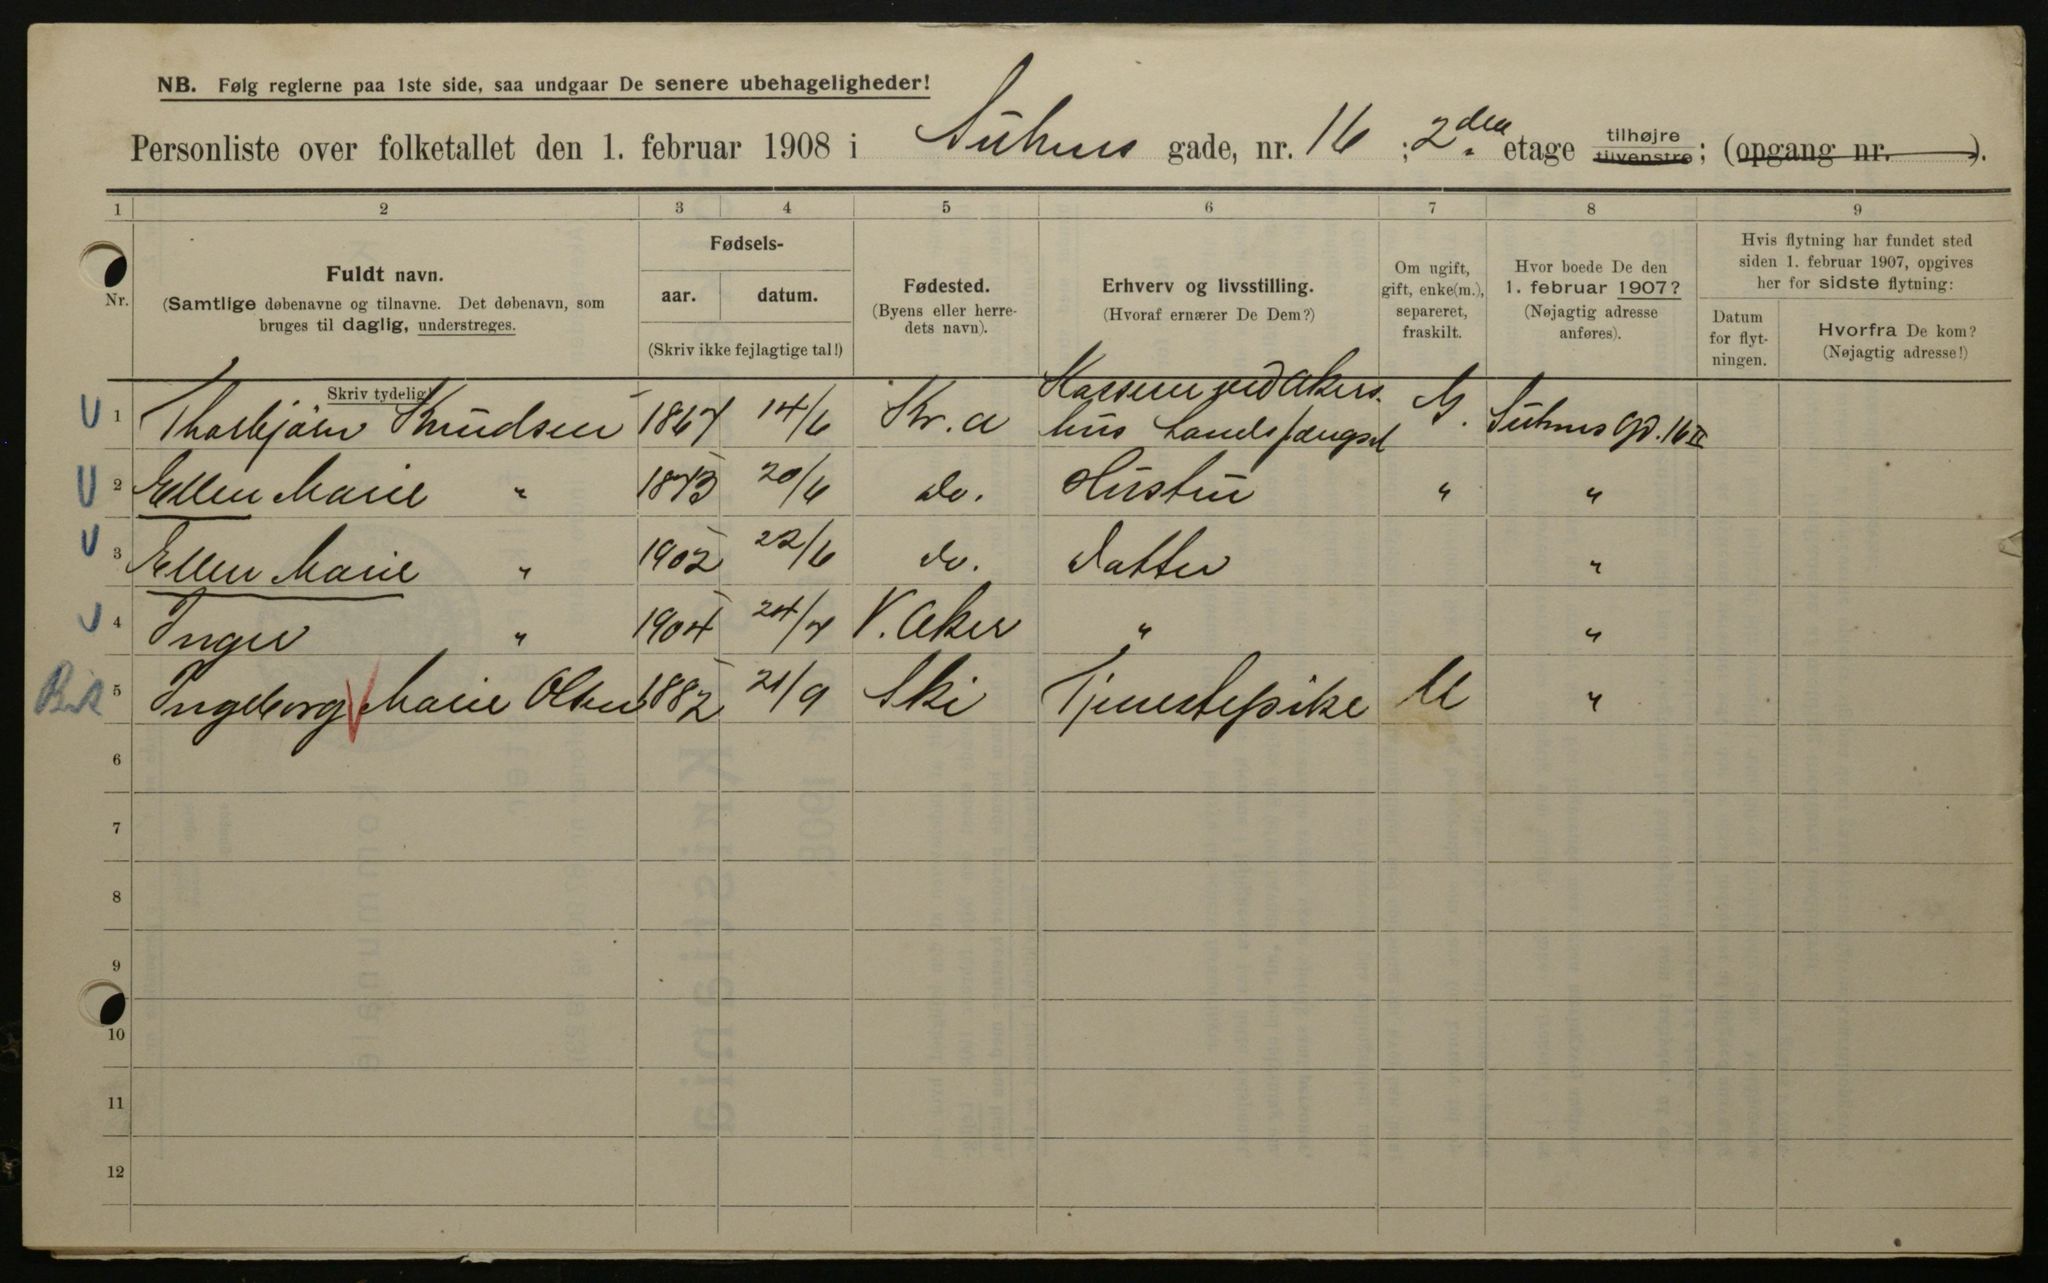 NB. Følg reglerne paa 1ste side, saa undgaar De senere ubehageligheder!
Personliste over folketallet den 1. februar 1908 i Suhms gade, nr. 16 ; 2den etage tilhøjre tilvenstre; (opgang nr. ).
1 2 3 4 5 6 7 8 9
Nr.
Fuldt navn.
(Samtlige døbenavne og tilnavne. Det døbenavn, som
bruges til daglig, understreges.
Skriv tydelig!
Fødsels-
aar. datum.
(Skriv ikke fejlagtige tal!)
Fødested.
(Byens eller herre-
dets navn).
Erhverv og livsstilling.
(Hvoraf ernærer De Dem?)
Om ugift,
gift, enke(m.),
separeret,
fraskilt.
Hvor boede De den
1. februar 1907?
(Nøjagtig adresse
anføres).
Hvis flytning har fundet sted
siden 1. februar 1907, opgives
her for sidste flytning:
Datum
for flyt-
ningen.
Hvorfra De kom?
(Nøjagtig adresse!)
U 1 Thorbjørn Knudsen 1867 14/6 Kr.a Kasserer ved Akers-
hus Landsfængsel G. Suhms gd. 16 II
U 2 Ellen Marie " 1873 20/6 do. Hustru " "
U 3 Ellen Marie " 1902 22/6 do. Datter "
U 4 Inger " 1904 24/7 V. Aker " "
5 Ingeborg Marie Olsen 1882 21/9 Ski Tjenestepike U "
6
7
8
9
10
11
12